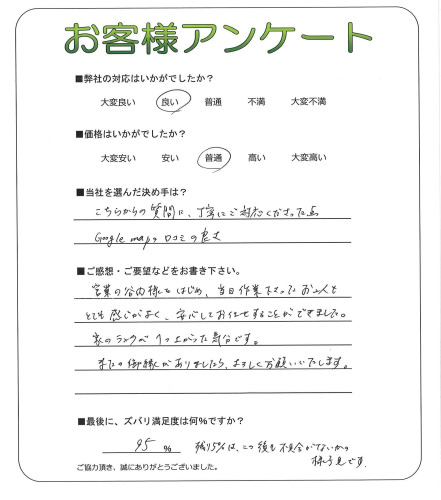 お客様アンケート
■弊社の対応はいかがでしたか?
大変良い 良い 普通 不満 大変不満
■価格はいかがでしたか?
大変安い 安い 普通 高い 大変高い
■当社を選んだ決め手は?
こちらからの質問に、丁寧にご対応くださった点
Google mapの口コミの良さ
■ご感想・ご要望などをお書き下さい。
営業の谷内様をはじめ、当日作業下さったお二人も
とても感じがよく、安心してお任せすることができました。
家のランクが1つ上がった気分です。
またの御縁がありましたら、よろしくお願いいたします。
■最後に、ズバリ満足度は何%ですか?
95 % 残り5%は、この後も不具合がないかの
様子見です。
ご協力頂き、誠にありがとうございました。